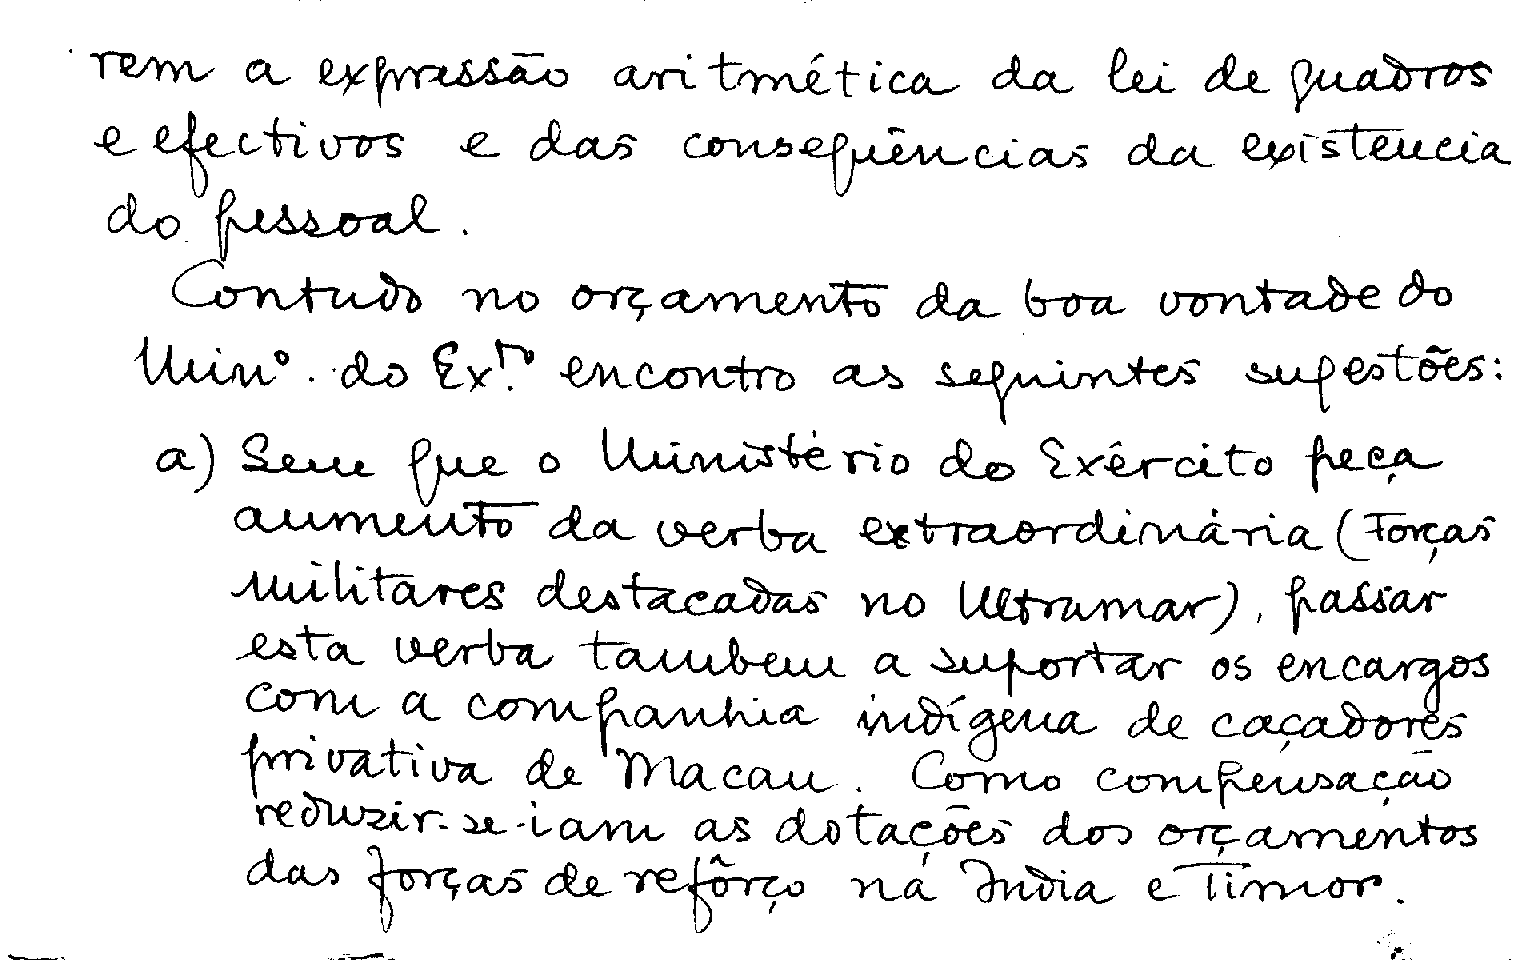 rem a expressão aritmética da lei de quadros
e efectivos e das conseqüências da existencia
do pessoal.
Contudo no orçamento da boa vontade do
Minº. do Exto. encontro as seguintes sugestões:
a) Sem que o Ministério do Exército peça
aumento da verba extraordinária (Forças
militares destacadas no Ultramar), passar
esta verba tambem a suportar os encargos
com a companhia indígena de caçadores
privativa de Macau. Como compensação
reduzir-se-iam as dotações dos orçamentos
das forças de refôrço na India e Timor.